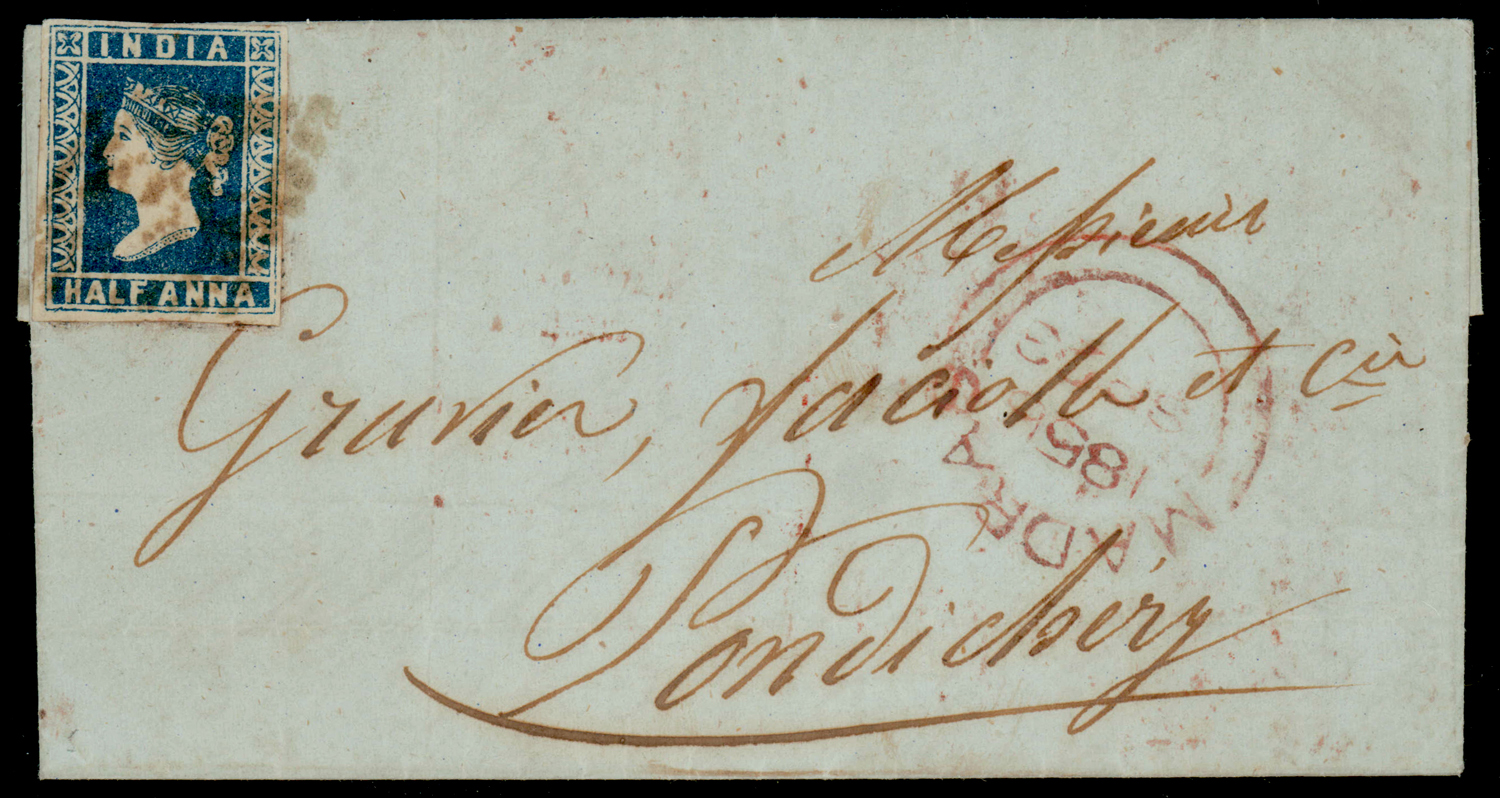 INDIA
HALF ANNA
Messieurs
Gravier, et Cie
Pondichéry
MADRAS
185